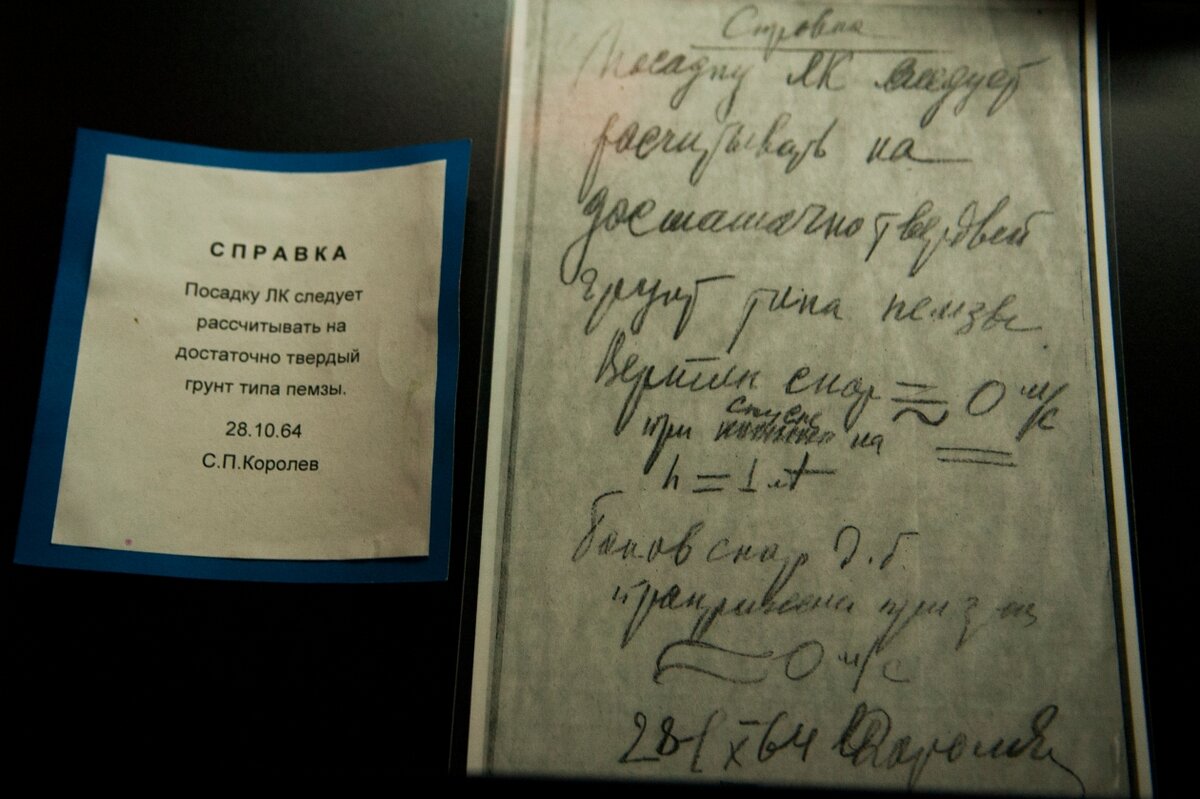 СПРАВКА
Посадку ЛК следует
рассчитывать на
достаточно твердый
грунт типа пемзы.
28.10.64
С.П.Королев
Справка
Посадку ЛК следует
расчитывать на
достаточно твердый
грунт типа пемзы
Вертик скор ≈ 0 м/с
при спуске на
h = 1 м
Боков скор д.б.
≈ 0 м/с
28/X 64 Королев